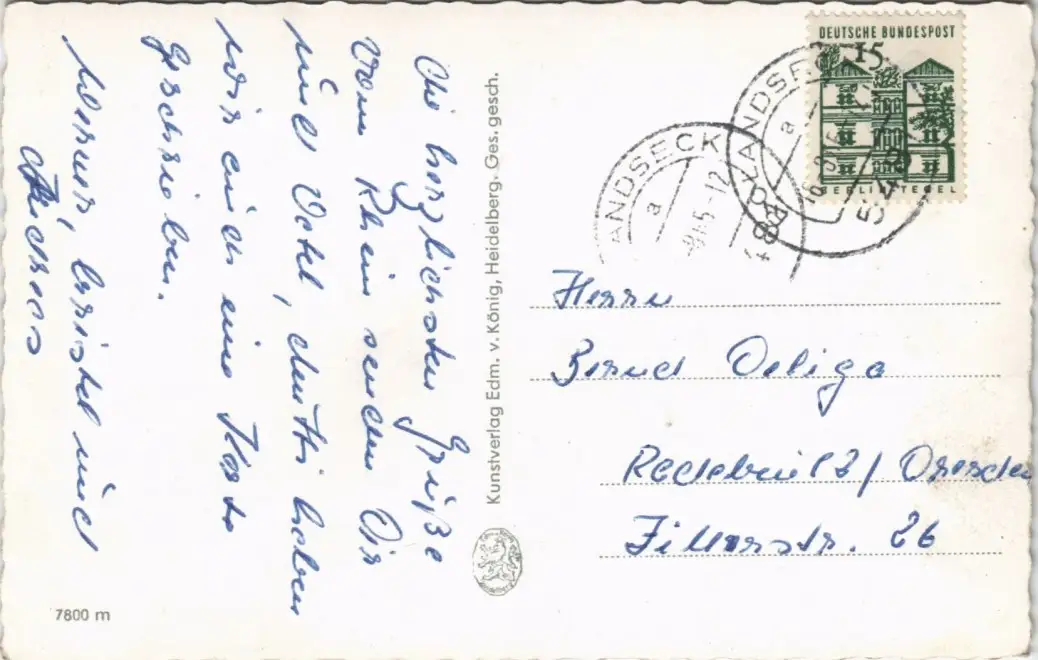 Die herzlichsten Grüße
vom Rhein senden Dir
und
wir auch eine Karte
geschrieben.
Werner, Christel und
Andreas
Kunstverlag Edm. v. König, Heidelberg. Ges. gesch.
7800 m
DEUTSCHE BUNDESPOST
15
BERLIN-TEGEL
ROLANDSECK
a
ANDSECK
a
Herrn
Bernd Deliga
Radebeul 2/ Dresden
Zillerstr. 26